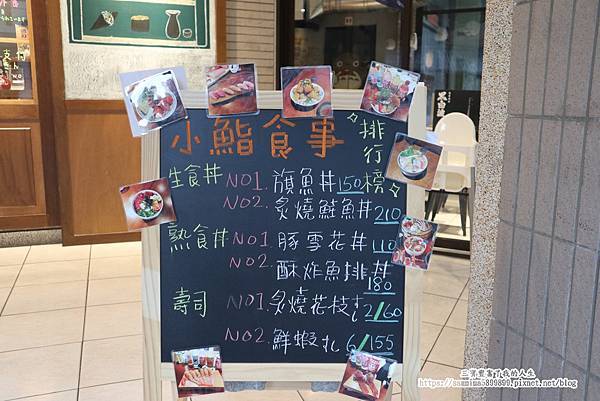 小鮨食事
排行榜
生食丼 NO1. 旗魚丼 150
NO2. 炙燒鮭魚丼 210
熟食丼 NO1. 豚雪花丼 110
NO2. 酥炸魚排丼 180
壽司 NO1. 炙燒花枝 2/60
NO2. 鮮蝦丸 6/155
三寶愛亂飛我的人生